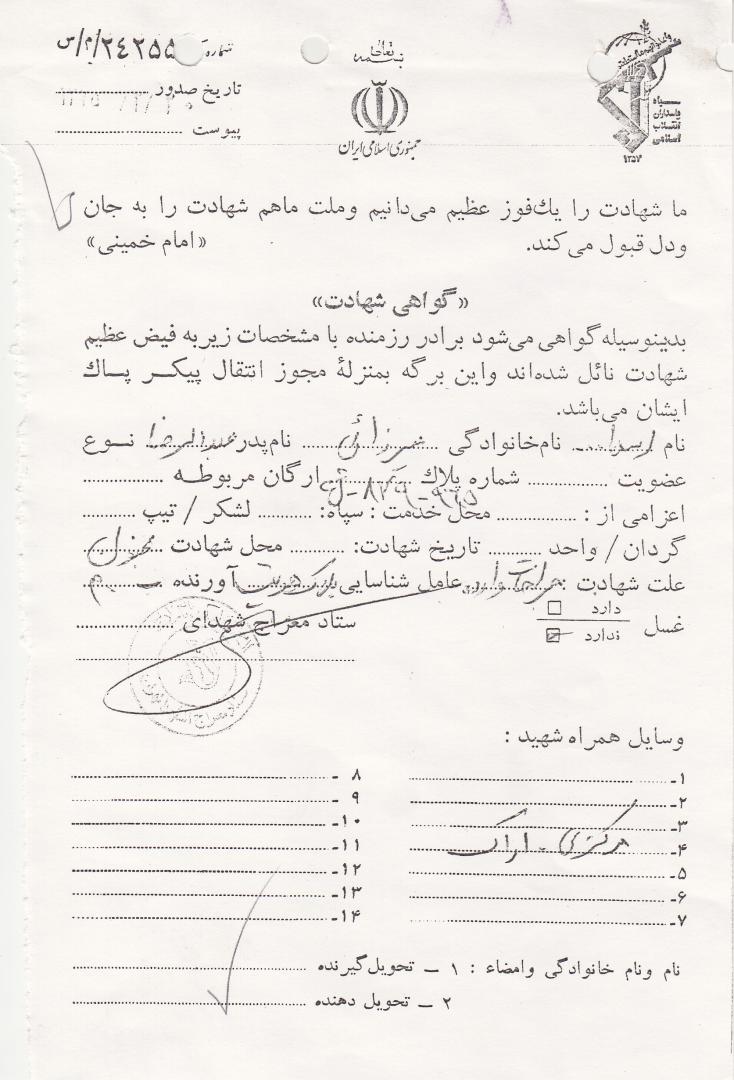 بسمه تعالی
جمهوری اسلامی ایران
سپاه پاسداران انقلاب اسلامی
۱۳۵۷
شماره ۲۴۲۵۵
تاریخ صدور
پیوست
ما شهادت را یك فوز عظیم می‌دانیم وملت ماهم شهادت را به جان
ودل قبول می‌کند. «امام خمینی»
«گواهی شهادت»
بدینوسیله گواهی می‌شود برادر رزمنده با مشخصات زیر به فیض عظیم
شهادت نائل شده‌اند واین برگه بمنزلهٔ مجوز انتقال پیکر پاك
ایشان می‌باشد.
نام نام‌خانوادگی نام‌پدر عبدالرضا نوع
عضویت شماره پلاك ارگان مربوطه
اعزامی از : محل خدمت : سپاه: لشکر / تیپ
گردان / واحد تاریخ شهادت: محل شهادت
علت شهادت : عامل شناسایی آورنده
غسل دارد ندارد ستاد معراج شهدای
وسایل همراه شهید :
۱- ۸ -
۲- ۹ -
۳- ۱۰-
۴- مرکزی - اراک ۱۱-
۵- ۱۲-
۶- ۱۳-
۷- ۱۴-
نام ونام خانوادگی وامضاء : ۱ – تحویل‌گیرنده
۲ – تحویل دهنده